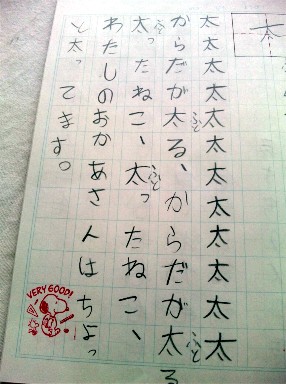 太
太太太太太太太太太太太太
からだが太る、からだが太る
太ったねこ、太ったねこ、
わたしのおかあさんはちょっ
と太ってます。
VERY GOOD!